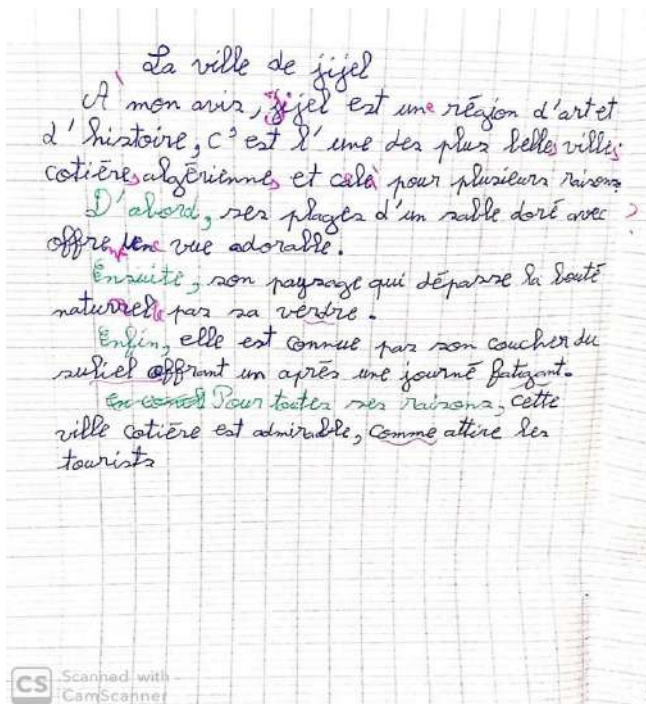 La ville de jijel
A mon avis, jijel est une région d'art et
d'histoire, c'est l'une des plus belles villes
cotières algériennes et cela pour plusieurs raisons
D'abord, ses plages d'un sable doré avec ?
offrent une vue adorable.
Ensuite, son paysage qui dépasse la bouté
naturrelle par sa verdre.
Enfin, elle est connue par son coucher du
suliel offrant un après une journé fatigant.
Pour toutes ses raisons, cette
ville cotière est admirable, comme attire les
tourists
CS Scanned with
CamScanner